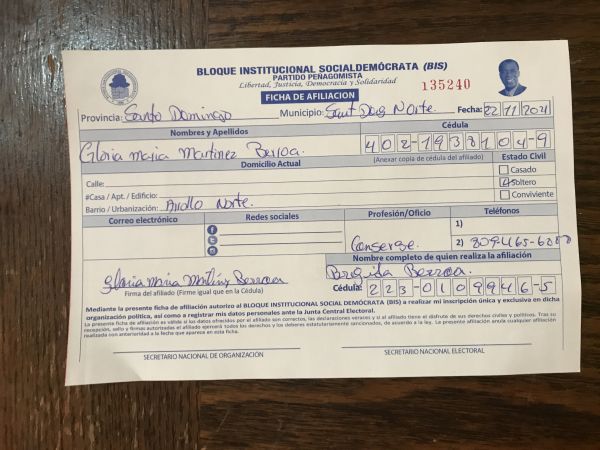 BLOQUE INSTITUCIONAL SOCIALDEMÓCRATA (BIS)
PARTIDO PEÑAGOMISTA
Libertad, Justicia, Democracia y Solidaridad
135240
FICHA DE AFILIACION
Provincia: Santo Domingo Municipio: Sant Dog Norte. Fecha: 22 11 2021
Nombres y Apellidos Cédula
Gloria Maria Martinez Berroa. 402-1938104-9
Domicilio Actual (Anexar copia de cédula del afiliado) Estado Civil
Calle: Casado
#Casa / Apt. / Edificio: Soltero
Barrio / Urbanización: Norte. Conviviente
Correo electrónico Redes sociales Profesión/Oficio Teléfonos
1)
Conserge. 2) 809-465-6000
Nombre completo de quien realiza la afiliación
Gloria Maria Martinez Berroa Brigida Berroa.
Firma del afiliado (Firme igual que en la Cédula) Cédula: 223-0109946-5
Mediante la presente ficha de afiliación autorizo al BLOQUE INSTITUCIONAL SOCIAL DEMÓCRATA (BIS) a realizar mi inscripción única y exclusiva en dicha
organización política, así como a registrar mis datos personales ante la Junta Central Electoral.
La presente ficha de afiliación es válida si los datos ofrecidos por el afiliado son correctos, las declaraciones veraces y si el afiliado tiene el disfrute de sus derechos civiles y políticos. Tras su
recepción, sello y firmas autorizadas el afiliado ejercerá todos los derechos y los deberes estatutariamente sancionados, de acuerdo a la ley. La presente afiliación anula cualquier afiliación
realizada con anterioridad a la fecha que aparece en esta ficha.
SECRETARIO NACIONAL DE ORGANIZACIÓN SECRETARIO NACIONAL ELECTORAL